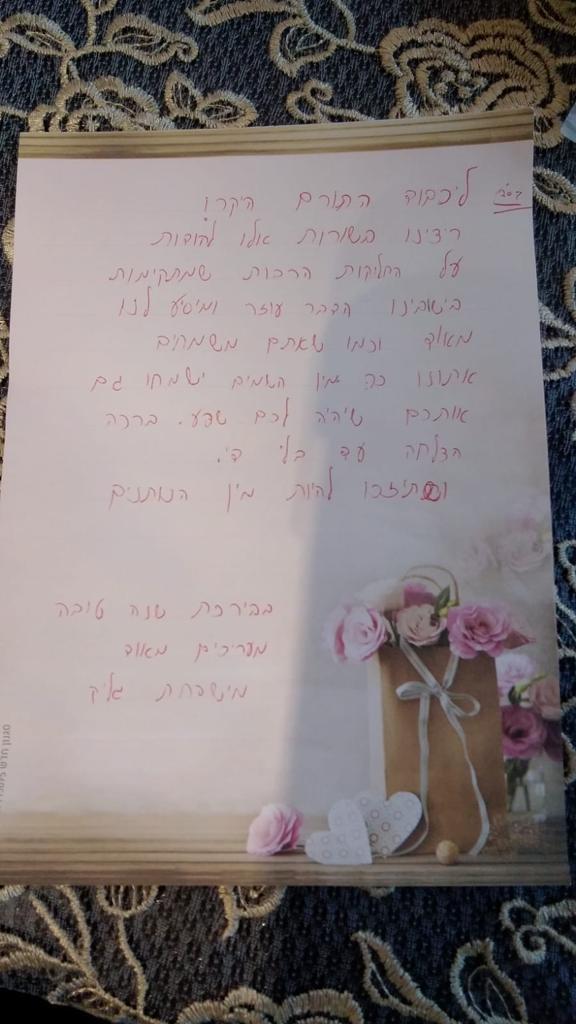 בס"ד
ליכבוד התורם היקר!
ריצינו בשורות אלו להודות
על החליקות הרבות שמתקימות
בישובינו הדבר עוזר ומיסיע לנו
מאוד וכמו שאתם משמחים
אותנו כך מין השמים ישמחו גם
אותכם שיהיה לכם שפע. ברכה
הצלחה עד בלי די.
ותיזכו להיות מין הנותנים
בבירכת שנה טובה
מעריכים מאוד
מישפחת גליק
סגנון חדש